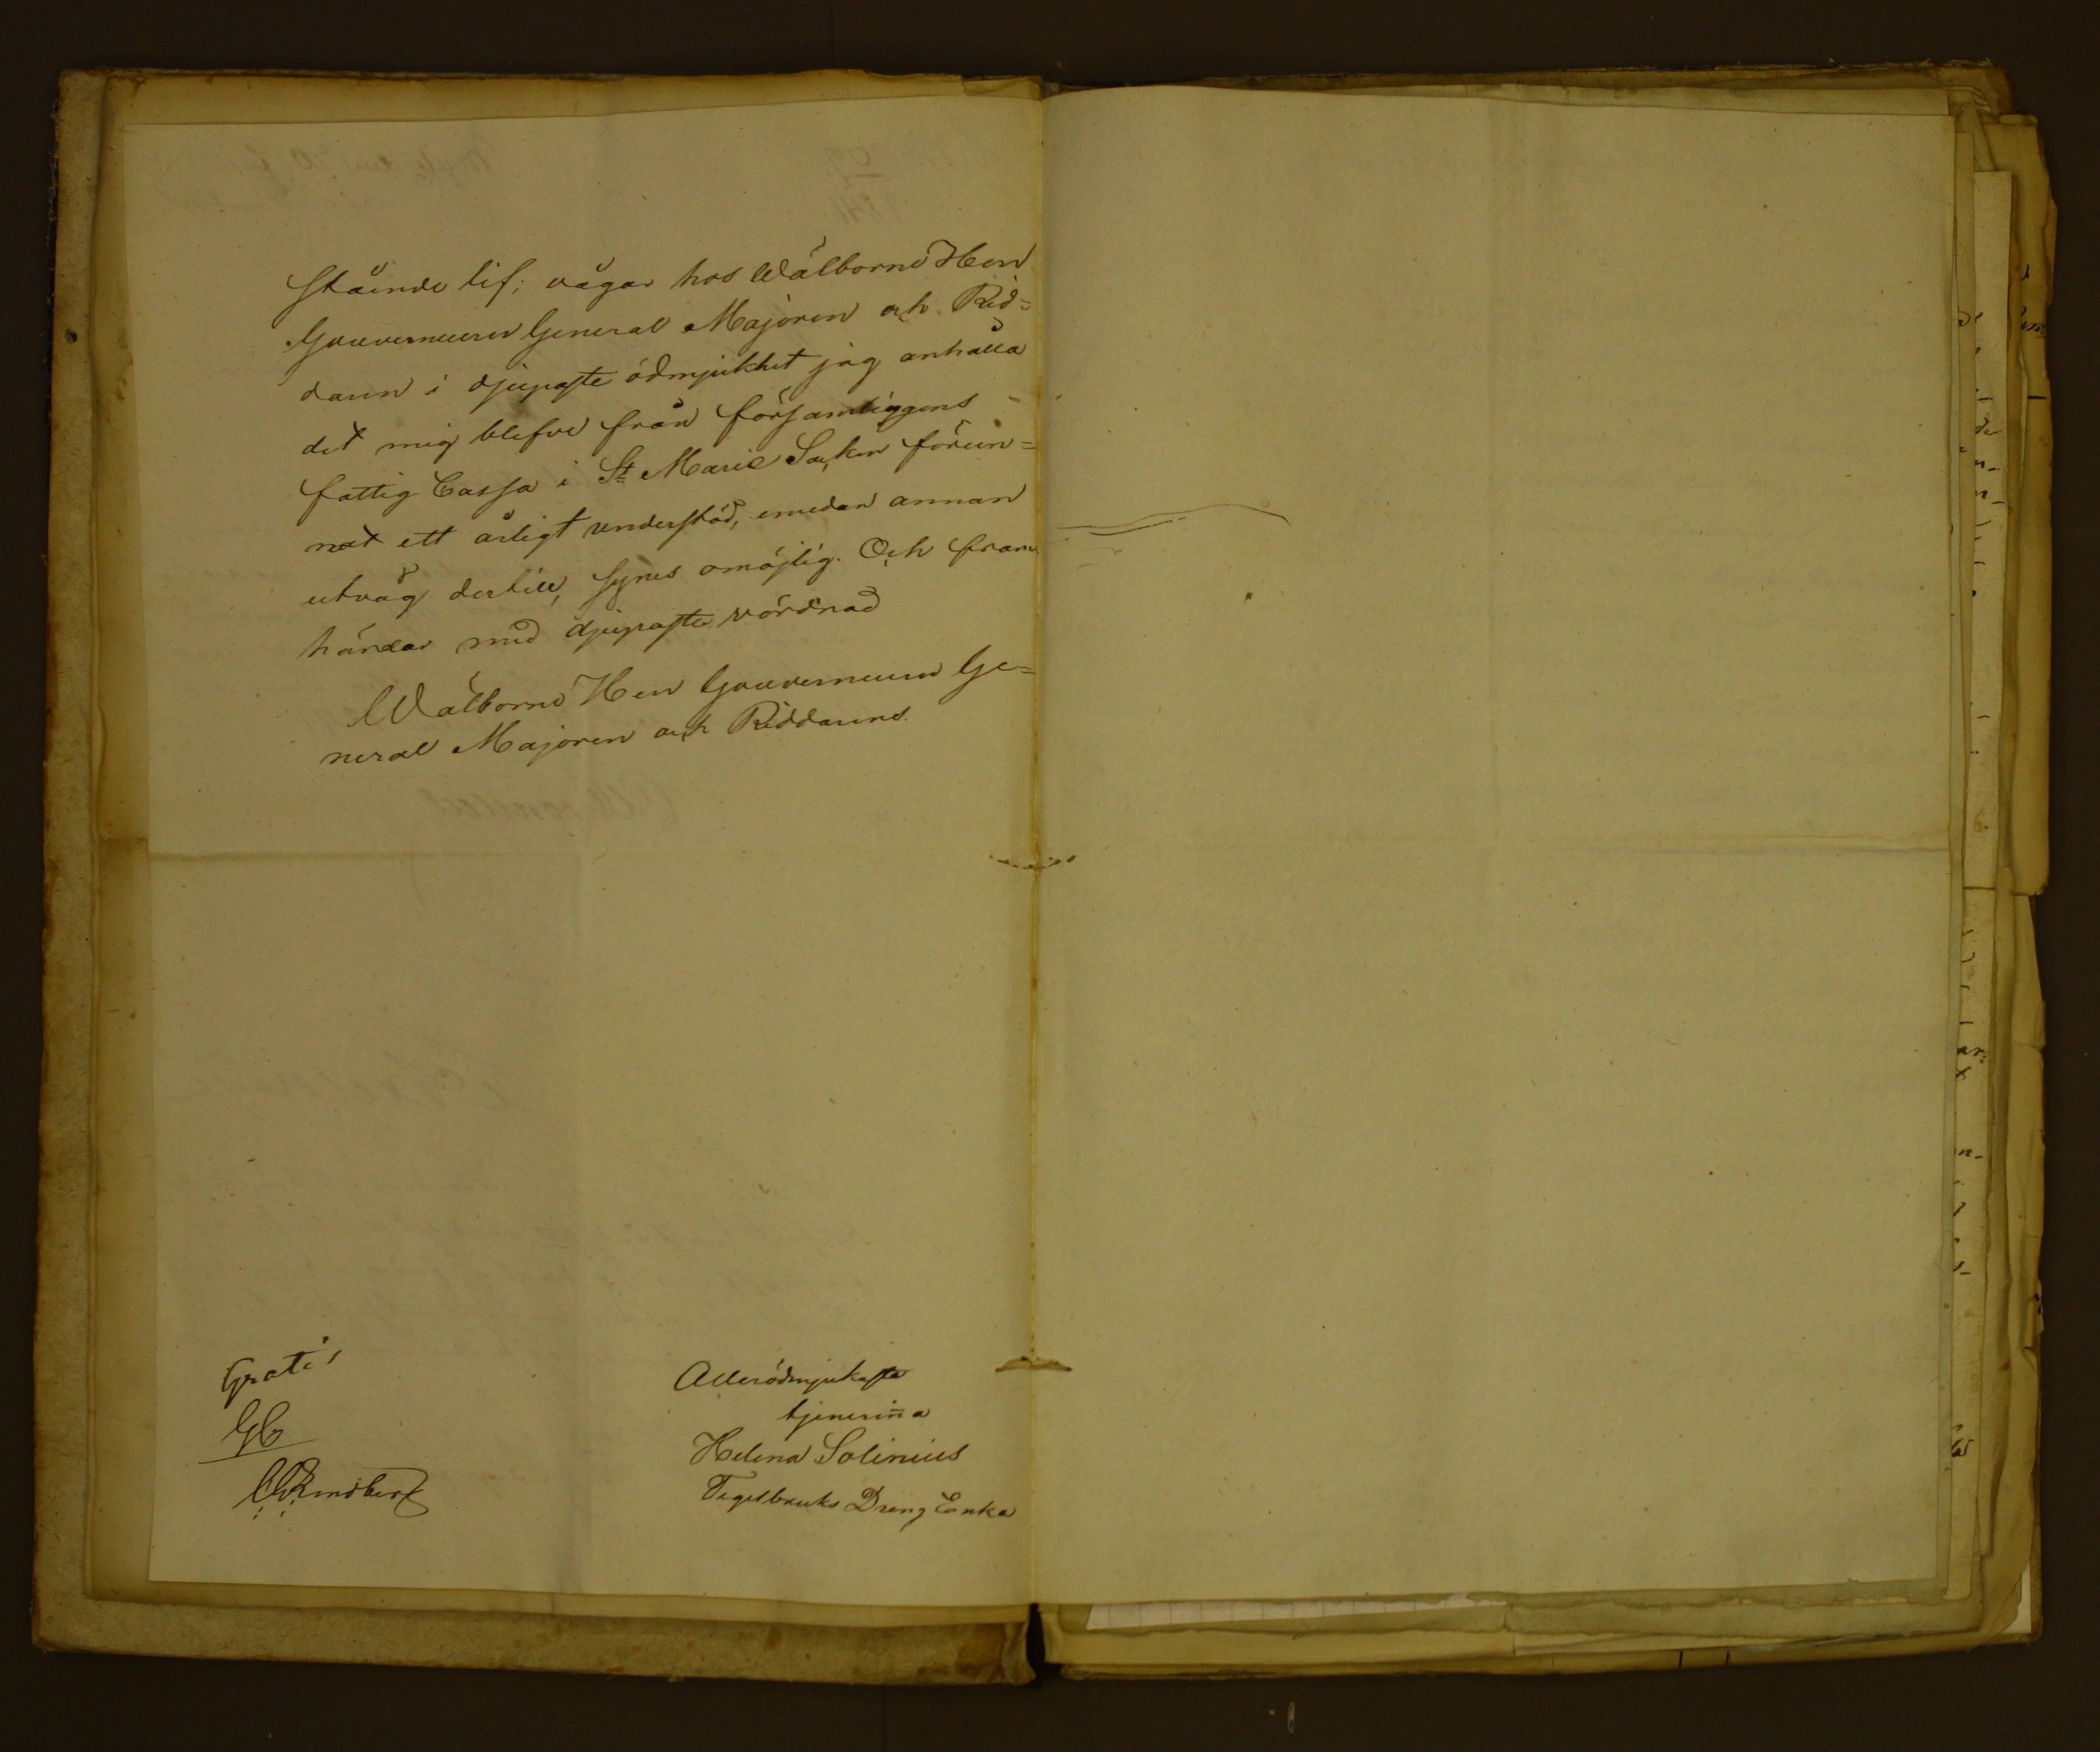 stående lif; vågar hos Wälborne Herr
Gouverneuren General Majoren och Rid=
daren i djupaste ödmjukhet jag anhålla
det mig blefve från församlingens
fattig Cassa i St Marie Socken förun=
nat ett årligt understöd, emedan annan
utväg dertill, synes omöjlig. Och fram
härdar med djupaste vördnad
Wälborne Herr Gouverneuren Ge=
neral Majoren och Riddarens
Allerödmjukaste
tjenarin̄a
Helena Solinius
Tegelbruks Dreng Enka
Gratis